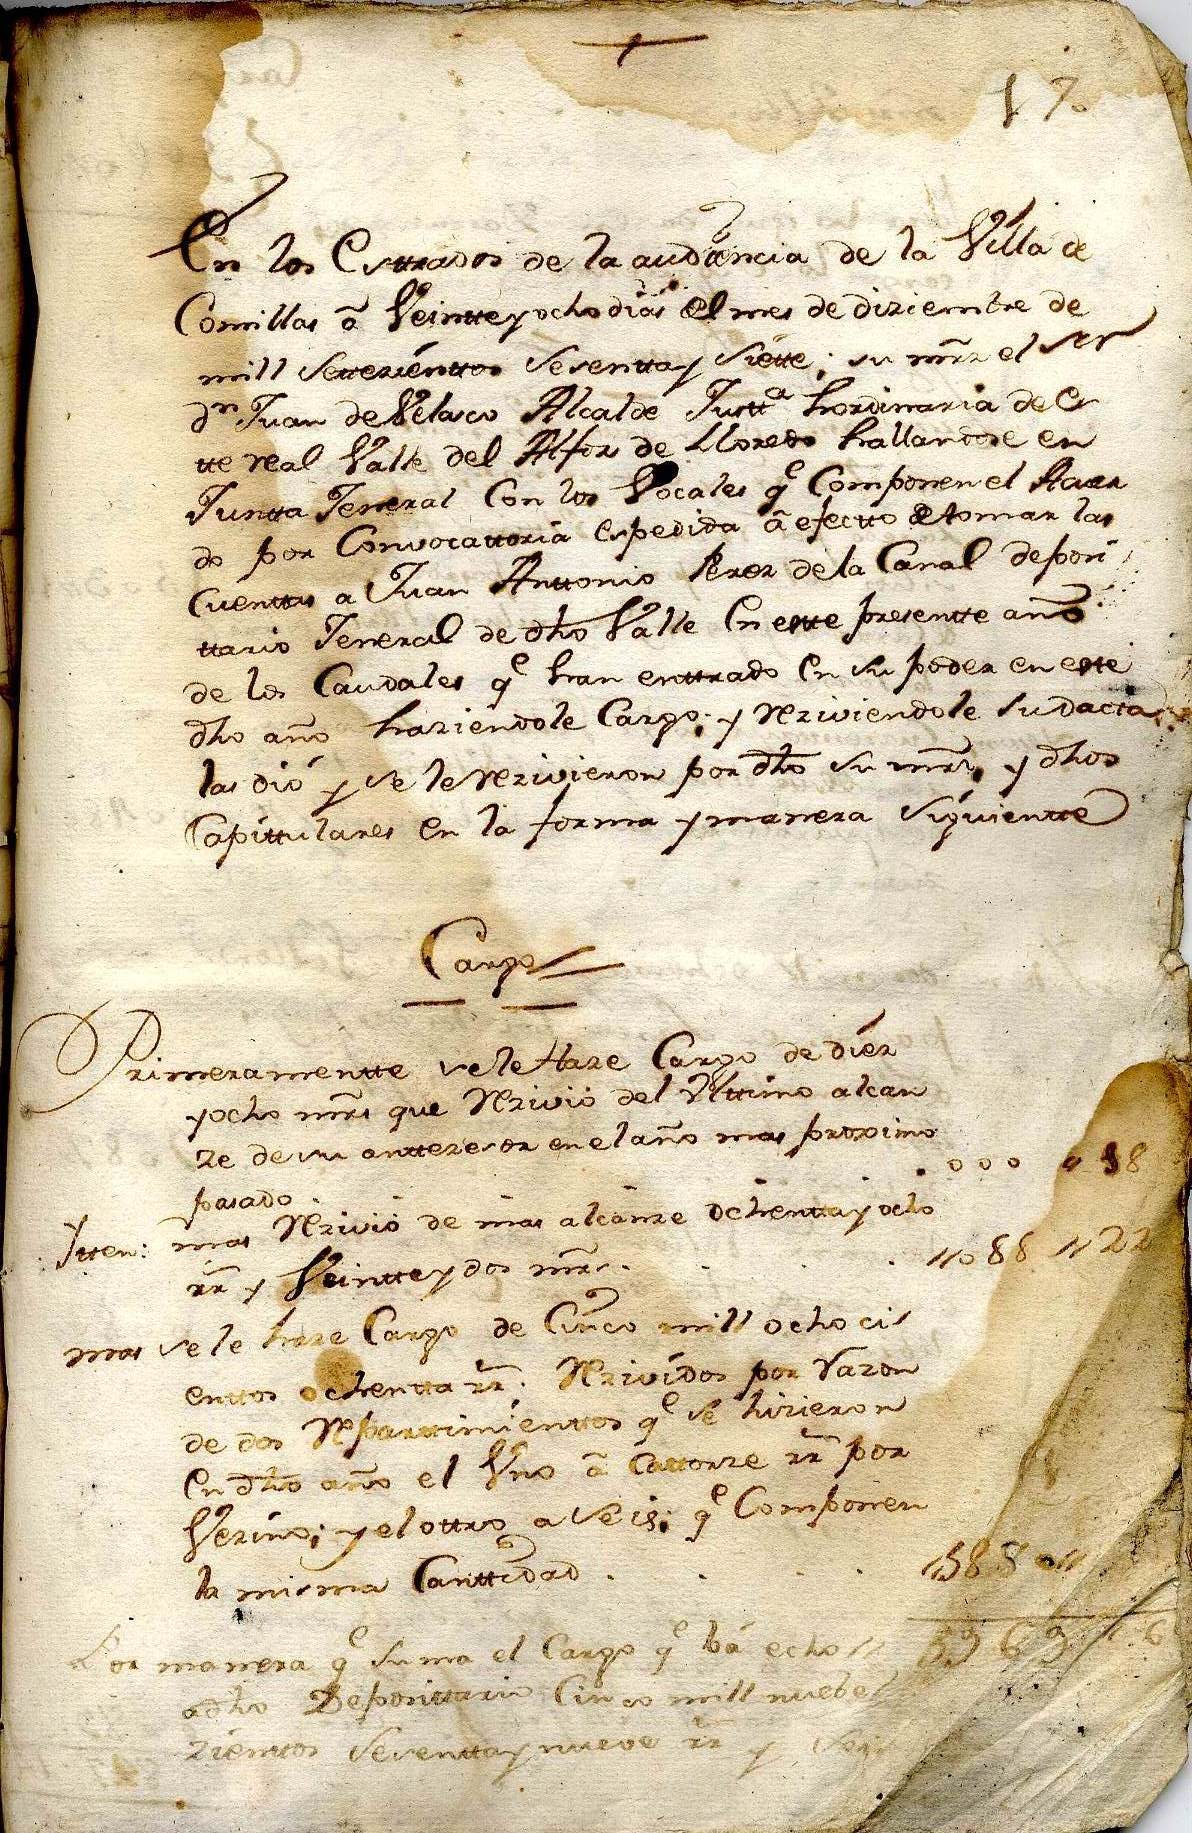 170
En los Esttrados de la audiencia de la Villa de
Comillas â Veintte y ocho dias del mes de diziembre de
mill settezienttos sesentta y siette; su mrz el Sor
dn Juan de Velasco Alcalde Justta hordinaria de es
tte real Valle del Alfoz de Lloredo hallandose en
Juntta Jeneral Con los Vocales qe Componen el Acuer
do por Convocattoria espedida â efectto de tomar las
Cuenttas a Juan Anttonio Perez de la Canal deposi
ttario Jeneral de dho Valle En estte presentte año
de los Caudales qe han enttrado en su poder en este
dho año haziendole Cargo; y Rziviendole su datta
las dió y se le Rzivieron por dho su mrz, y dhos
Capittulares en la forma y manera siguientte
Cargo
Primeramentte se le Haze Cargo de diez
y ocho mrs que Rzivió del Ulttimo alcan
ze de su anttezesor en el año mas proximo
pasado . 000 " 18
Itten: mas Rzivió de mas alcanze ochentta y ocho
rr y Veintte y dos mrs . . . . "088 "22
mas se le haze Cargo de Cinco mill ocho ci
enttos ochentta rr. Rzividos por Razon
de dos Reparttimienttos qe se hizieron
en dho año el Uno â Cattorze rr por
Vezino; y el ottro a seis; qe Componen
la misma Canttidad . . . . "5880"
Por manera qe suma el Cargo qe bá echo 5969 " 6
a dho Deposittario Cinco mill nuebe
zienttos sesentta y nueve rr y seis